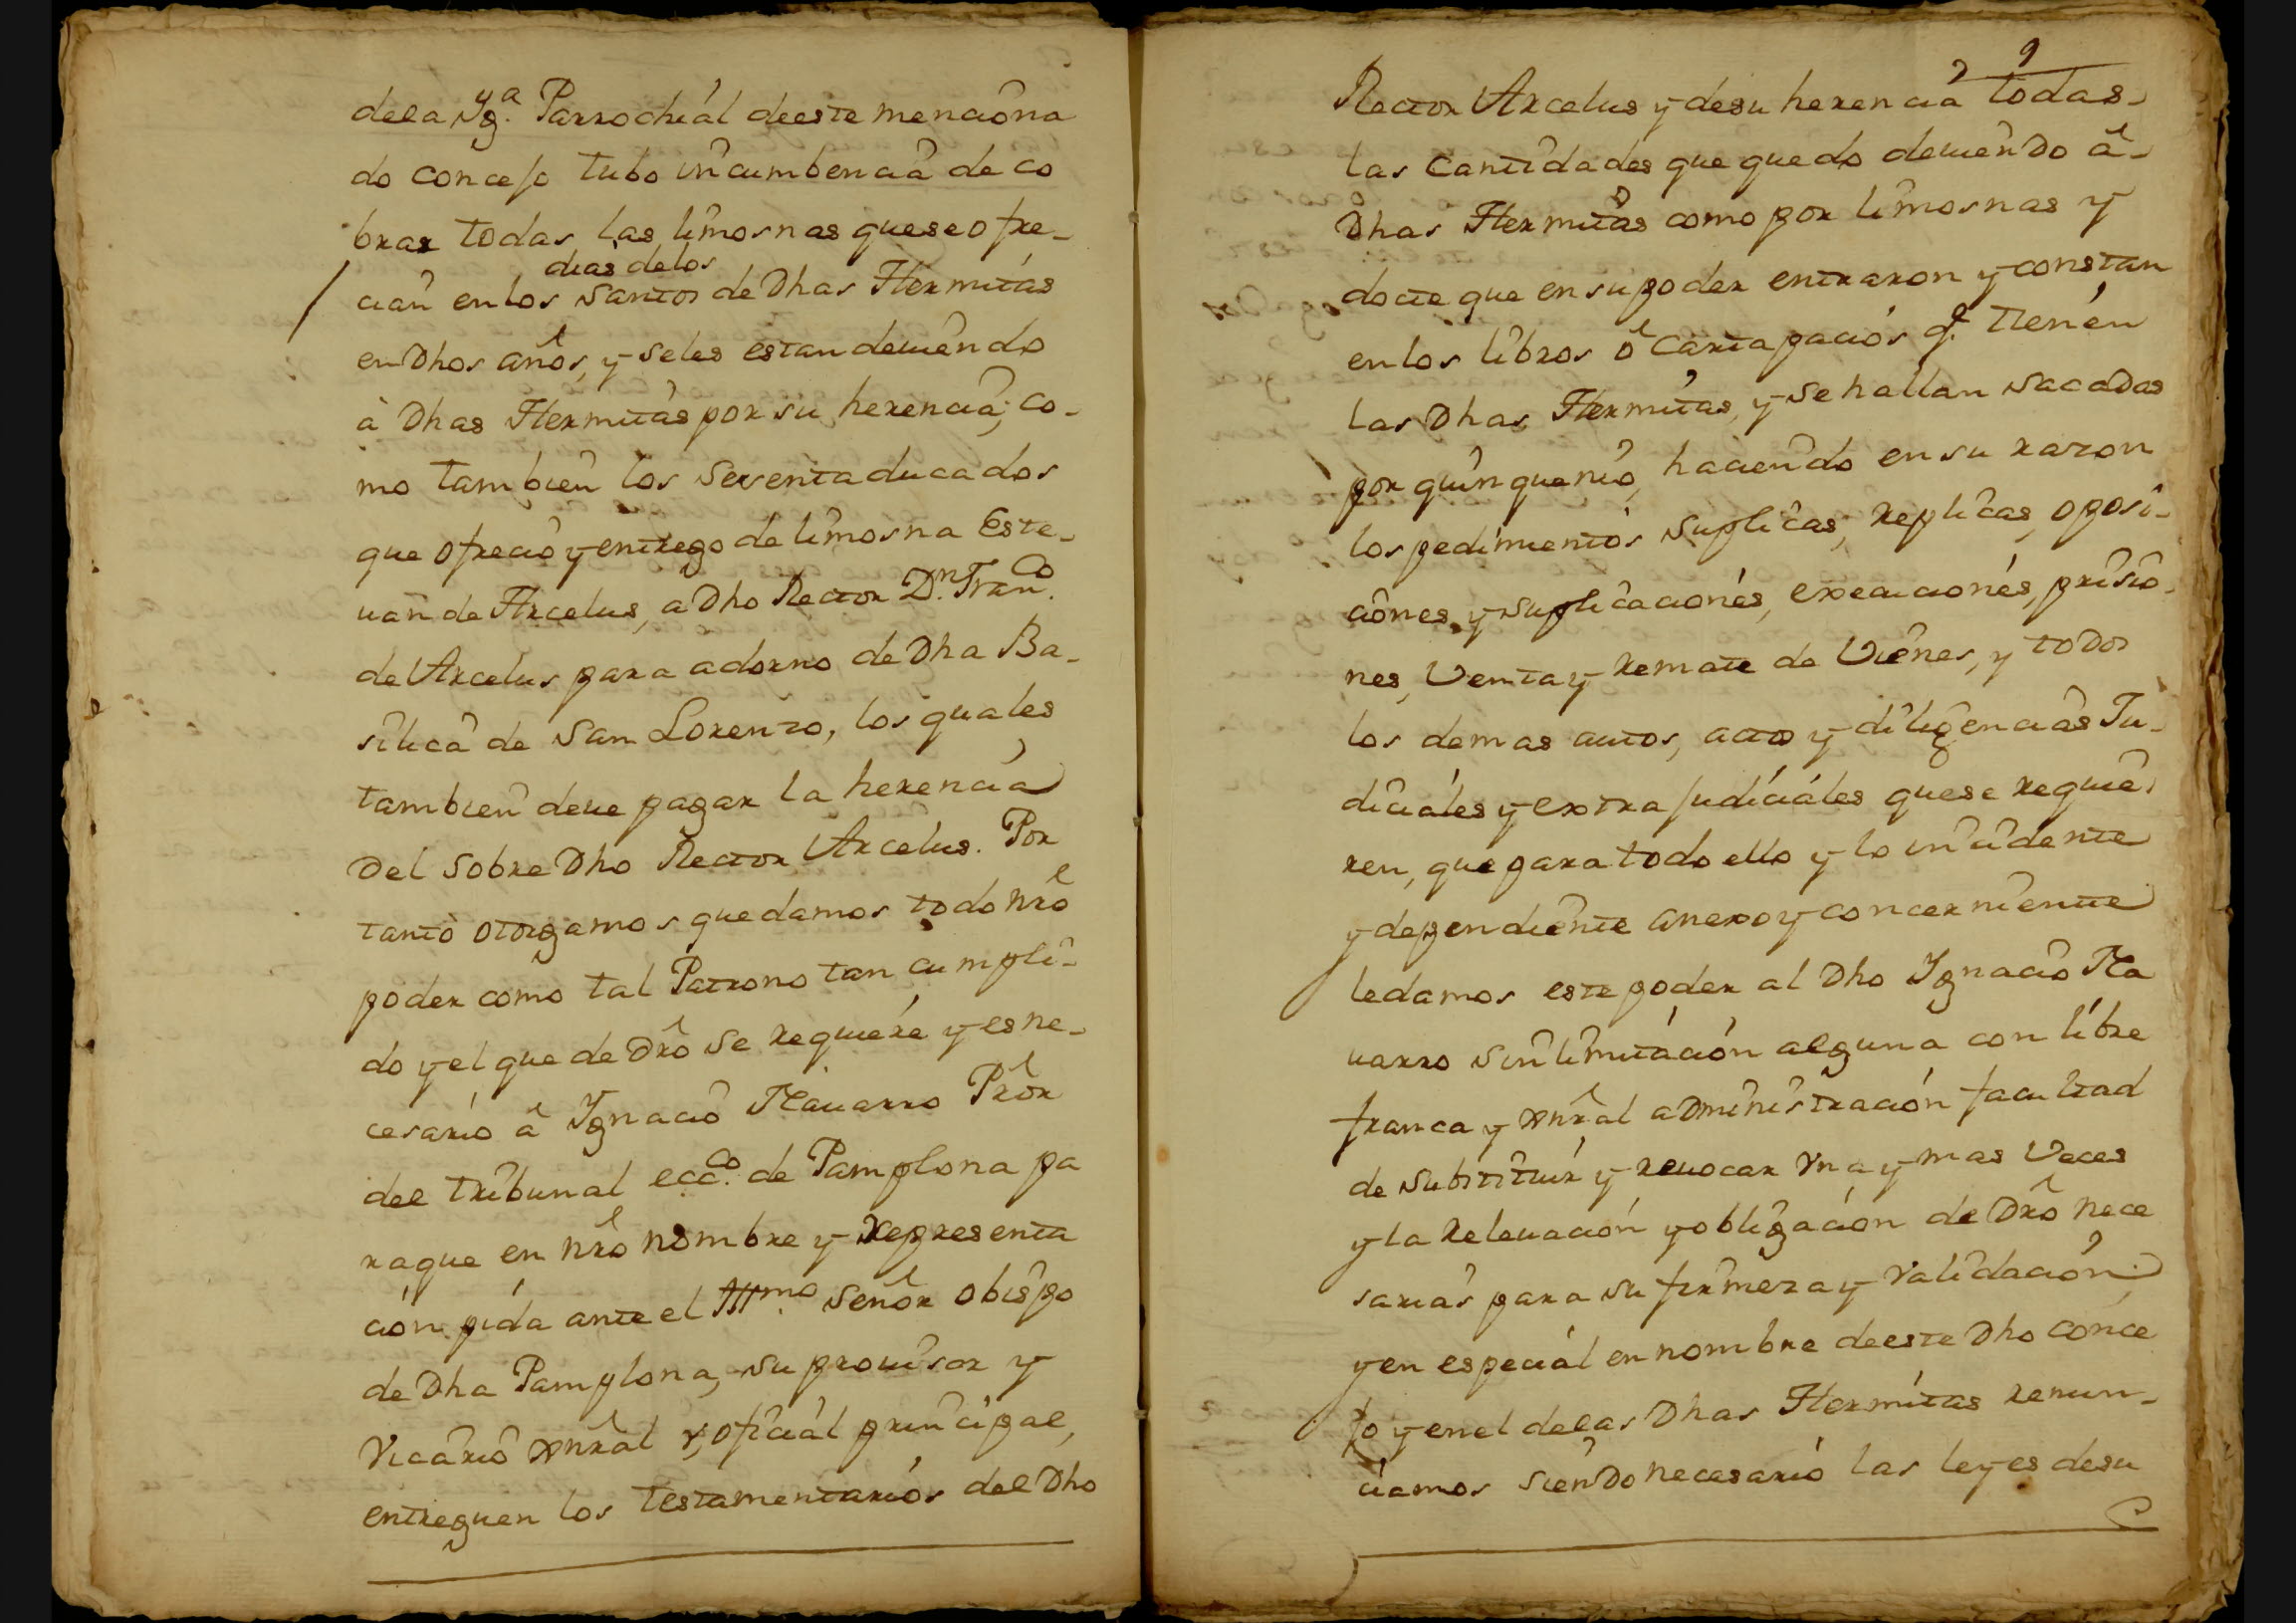 dela Yg.ª Parrochiál deeste menciona
do concejo tubo incumbencia de co
brar todas las limosnas queseofre-
dias delos
cian enlos Santos de Dhas Hermitas
en Dhos años, y seles estan deuiendo
à Dhas Hermitas por su herencia; co-
mo tambien los sesenta ducados
que ofreció y entrego de limosna Este-
uan de Arcelus, a Dho Rector D.n Fran.co
de Arcelus para adorno de Dha Ba-
silica de San Lorenzo, los quales
tambien deue pagar la herencia
Del sobre Dho Rector Arcelus. Por
tanto otorgamos que damos todo nrô
poder como tal Patrono tan cumpli-
do y el que de Drô se requiére y es ne-
cesario â Ygnacio Nauarro Prôr
del tribunal ecc.co de Pamplona pa
raque en nrô nombre y Representa
ción pida ante el Ill.mo Señor obispo
de Dha Pamplona, su prouisor y
Vicario xnrâl y oficiál principal,
entreguen los testamentarios del Dho
9
Rector Arcelus y desu herencia todas-
las cantidades que quedo deuiendo â-
Dhas Hermitas como por limosnas y
docte que en su poder entraron y constan
enlos libros ô cartapacios q.e tienén
las Dhas Hermitas, y se hallan sacadas
por quinquenio, haciendo en su razon
los pedimientos suplicas, replicas, oposi-
ciones y suplicaciones, execuciones, prisio-
nes, Venta y Remate de Vienes, y todos
los demas autos, actos y diligencias Ju-
diciáles y extra judiciáles quese requie-
ren, que para todo ello y lo incidente
y dependiente anexo y concerniente
ledamos este poder al Dho Ygnacio Na
uarro sin limitación alguna con libre
franca y xnrâl administración facultad
de substituir y reuocar Vna y mas Veces
y la Releuación y obligación de Drô nece
sarias para su firmeza y Validación;
y en especiál en nombre deeste Dho conce
jo y enel delas Dhas Hermitas renun-
ciamos siendo necesario las leyes desu